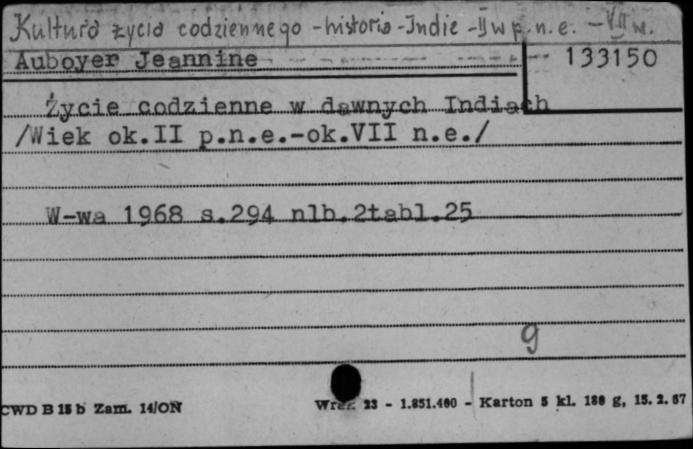 Kultura życia codziennego - historia - Indie - II w p.n.e. - VII w.
Auboyer Jeannine
133150
Życie codzienne w dawnych Indiach
/Wiek ok.II p.n.e.-ok.VII n.e./
W-wa 1968 s.294 nlb.2tabl.25
9
CWD B 15 b Zam. 14/ON
23 - 1.851.400 - Karton 5 kl. 180 g, 15.2.67